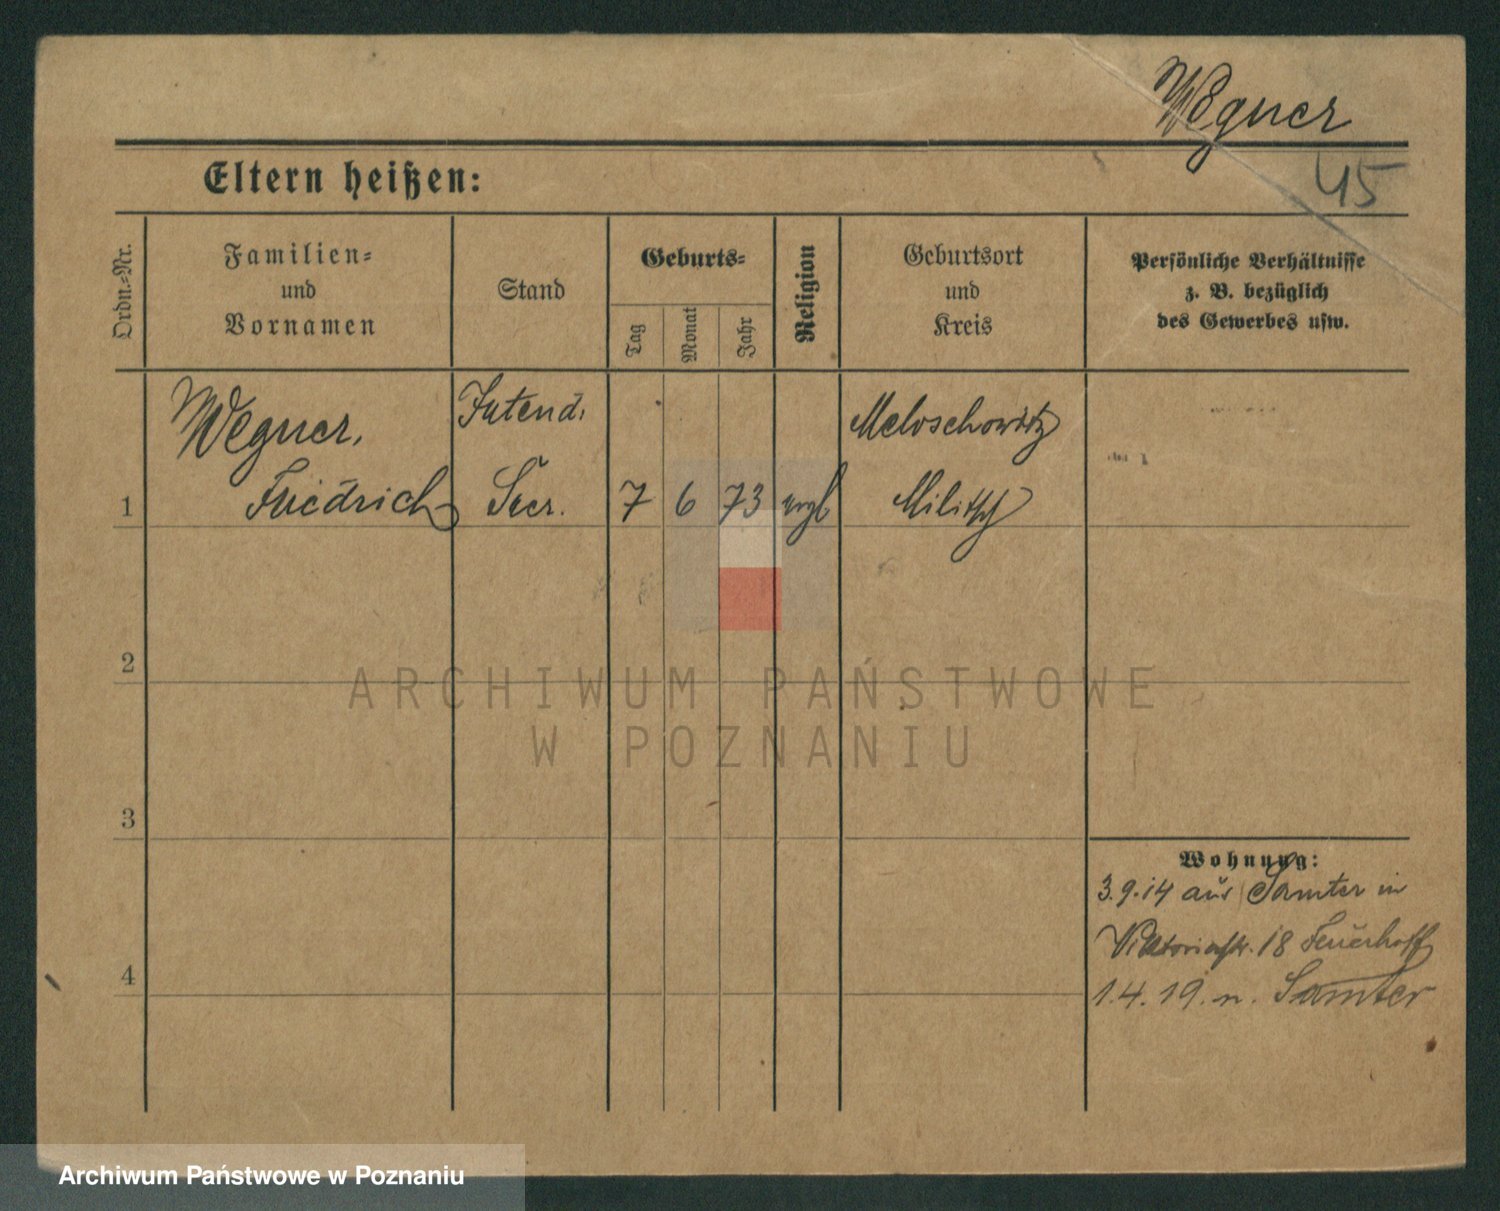 Wegner
45
Eltern heißen:
Ordn.-Nr.
Familien-
und
Vornamen
Stand
Geburts-
Tag
Monat
Jahr
Religion
Geburtsort
und
Kreis
Persönliche Verhältnisse
z. B. bezüglich
des Gewerbes usw.
Wegner, Intend. Meloschowitz
1 Friedrich Secr. 7 6 73 evgl Militsch
2
ARCHIWUM PAŃSTWOWE
W POZNANIU
3
Wohnung:
3.9.14 aus Samter in
Viktoriastr. 18 Feuerhoff
4
1.4.19. n. Samter
Archiwum Państwowe w Poznaniu